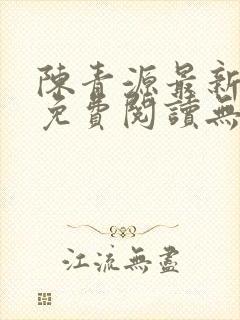 陳青源最新
免費閱讀無
江流無盡